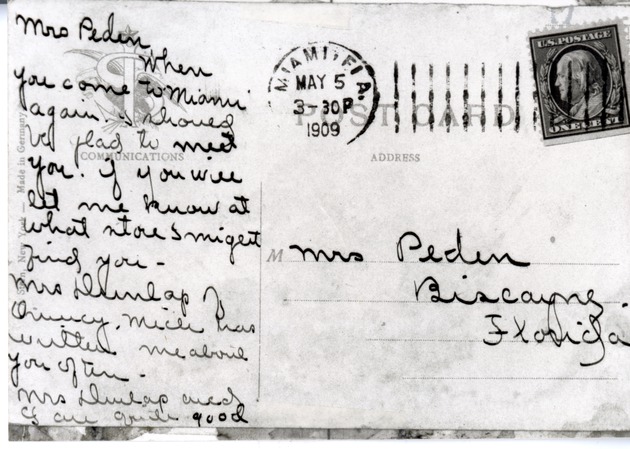 Mrs Peden
When
you come to Miami
again. I should
be glad to meet
you. if you will
let me know at
what store I might
find you -
Mrs Dunlap of
Quincy. Mich has
written me about
you often.
Mrs Dunlap and
I are quite good
COMMUNICATIONS
New York — Made in Germany
MIAMI, FLA.
MAY 5
3-30P
1909
U.S. POSTAGE
ONE CENT
POST CARD
ADDRESS
M Mrs Peden
Biscayne.
Florida